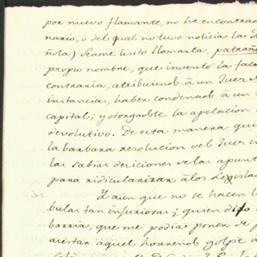 por nuevo flamante, no he encontra
nario, ò del qual no tuvo noticia la
ñola) seame licito llamarla, patrañ
proprio nombre, que inventò la fac
contraria, atribuiendo à un Juez
instancia, haber condenado à un
capital; y otorgadole la apelacion
devolutivo. De esta manera que
la barbara resolucion del Juez in
las sabias decisiones de la
para ridiculizar a los Legisla
Y aun que no se hacen
bular tan injuriosas; quien dijo
barria, que me podian poner de p
acertar aquel horrendo golpe à